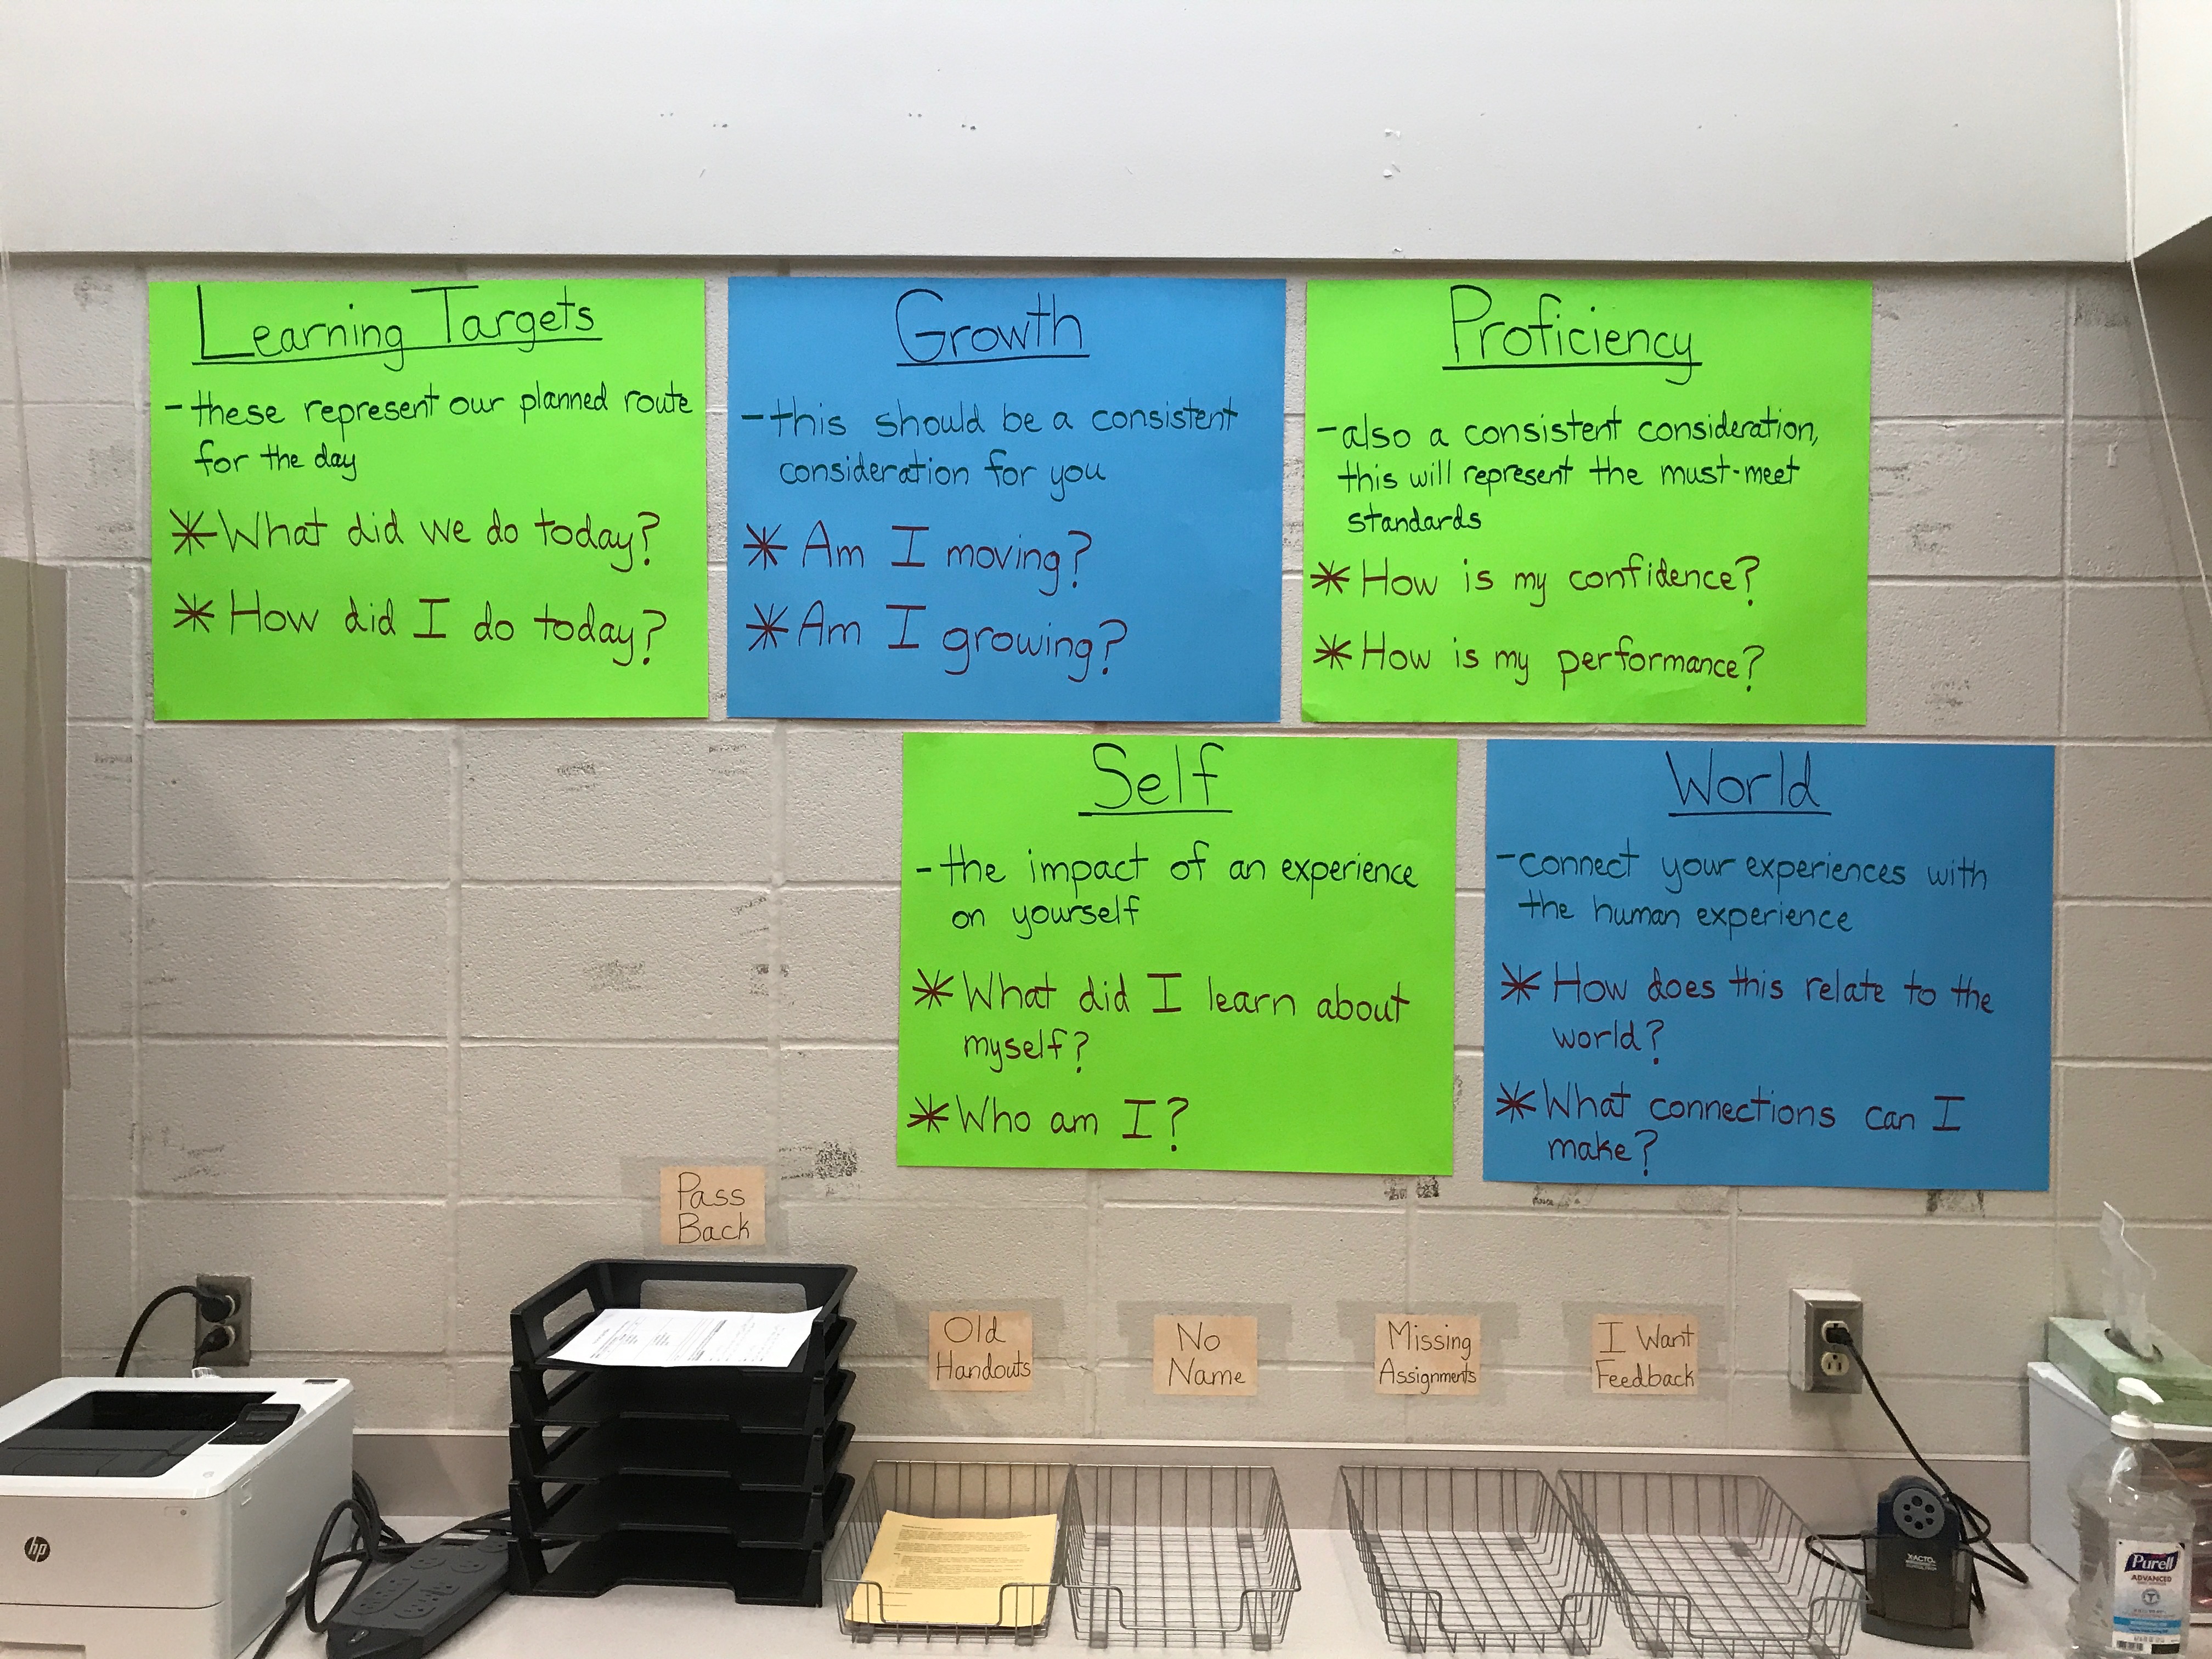 Learning Targets
-these represent our planned route
for the day
*What did we do today?
*How did I do today?
Growth
-this should be a consistent
consideration for you
*Am I moving?
*Am I growing?
Proficiency
-also a consistent consideration,
this will represent the must-meet
standards
*How is my confidence?
*How is my performance?
Self
-the impact of an experience
on yourself
*What did I learn about
myself?
*Who am I?
World
-connect your experiences with
the human experience
*How does this relate to the
world?
*What connections can I
make?
Pass
Back
Old
Handouts
No
Name
Missing
Assignments
I Want
Feedback
hp
X-ACTO
Purell
ADVANCED